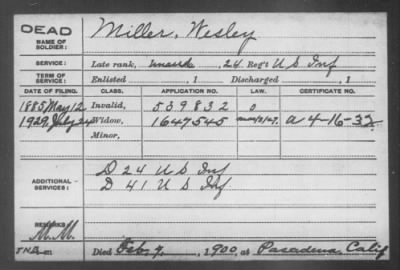 DEAD
NAME OF SOLDIER: Miller, Wesley
SERVICE: Late rank, 24 Reg't U S Inf
TERM OF SERVICE: Enlisted , 1 Discharged , 1
DATE OF FILING. CLASS. APPLICATION NO. LAW. CERTIFICATE NO.
1885 May 12 Invalid, 539832 0
1929, July 24 Widow, 1647545 A 4-16-32
Minor,
ADDITIONAL SERVICES: D 24 U S Inf
D 41 U S Inf
REMARKS:
M.M.
Died Feb 7, 1900, at Pasadena, Calif